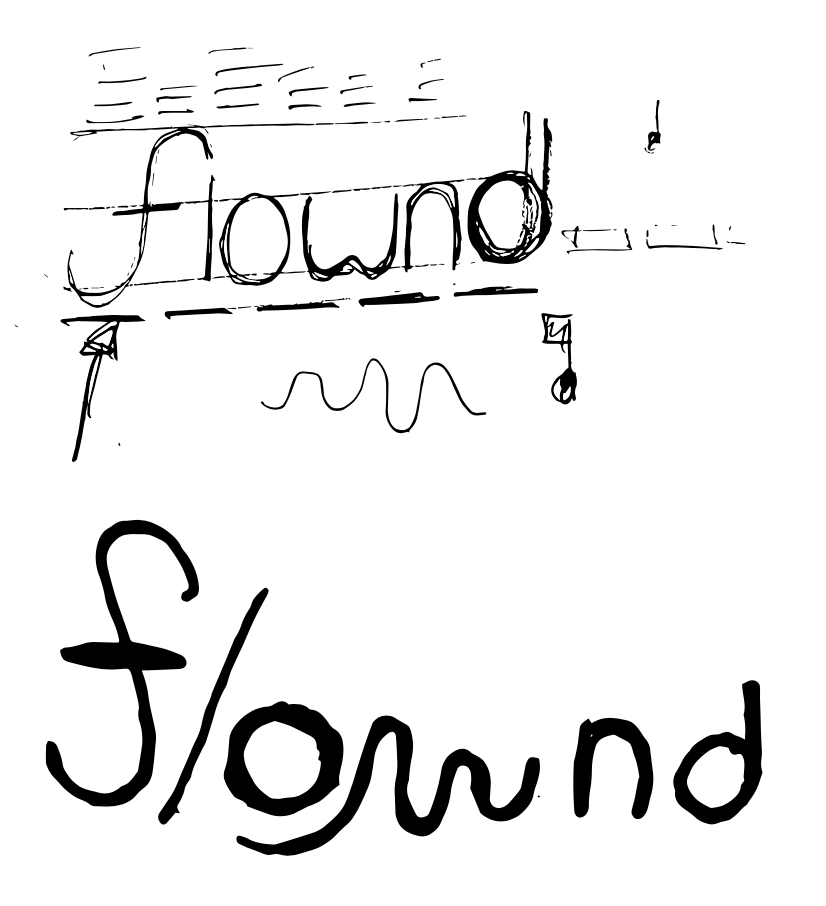 flownd
flownd